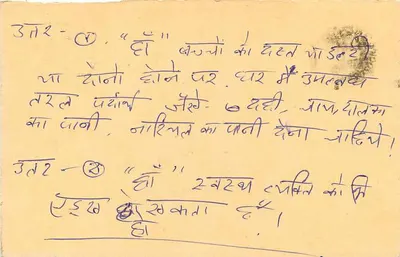 उत्तर - ① "हाँ" बच्चों को दस्त या उल्टी
या दोनो होने पर घर में उपलब्ध
तरल पदार्थ जैसे - दही, चाय, दाल का
का पानी, नारियल का पानी देना चाहिये।
उत्तर - ② "हाँ" स्वस्थ व्यक्ति को भी
एड्स हो सकता है।
हो